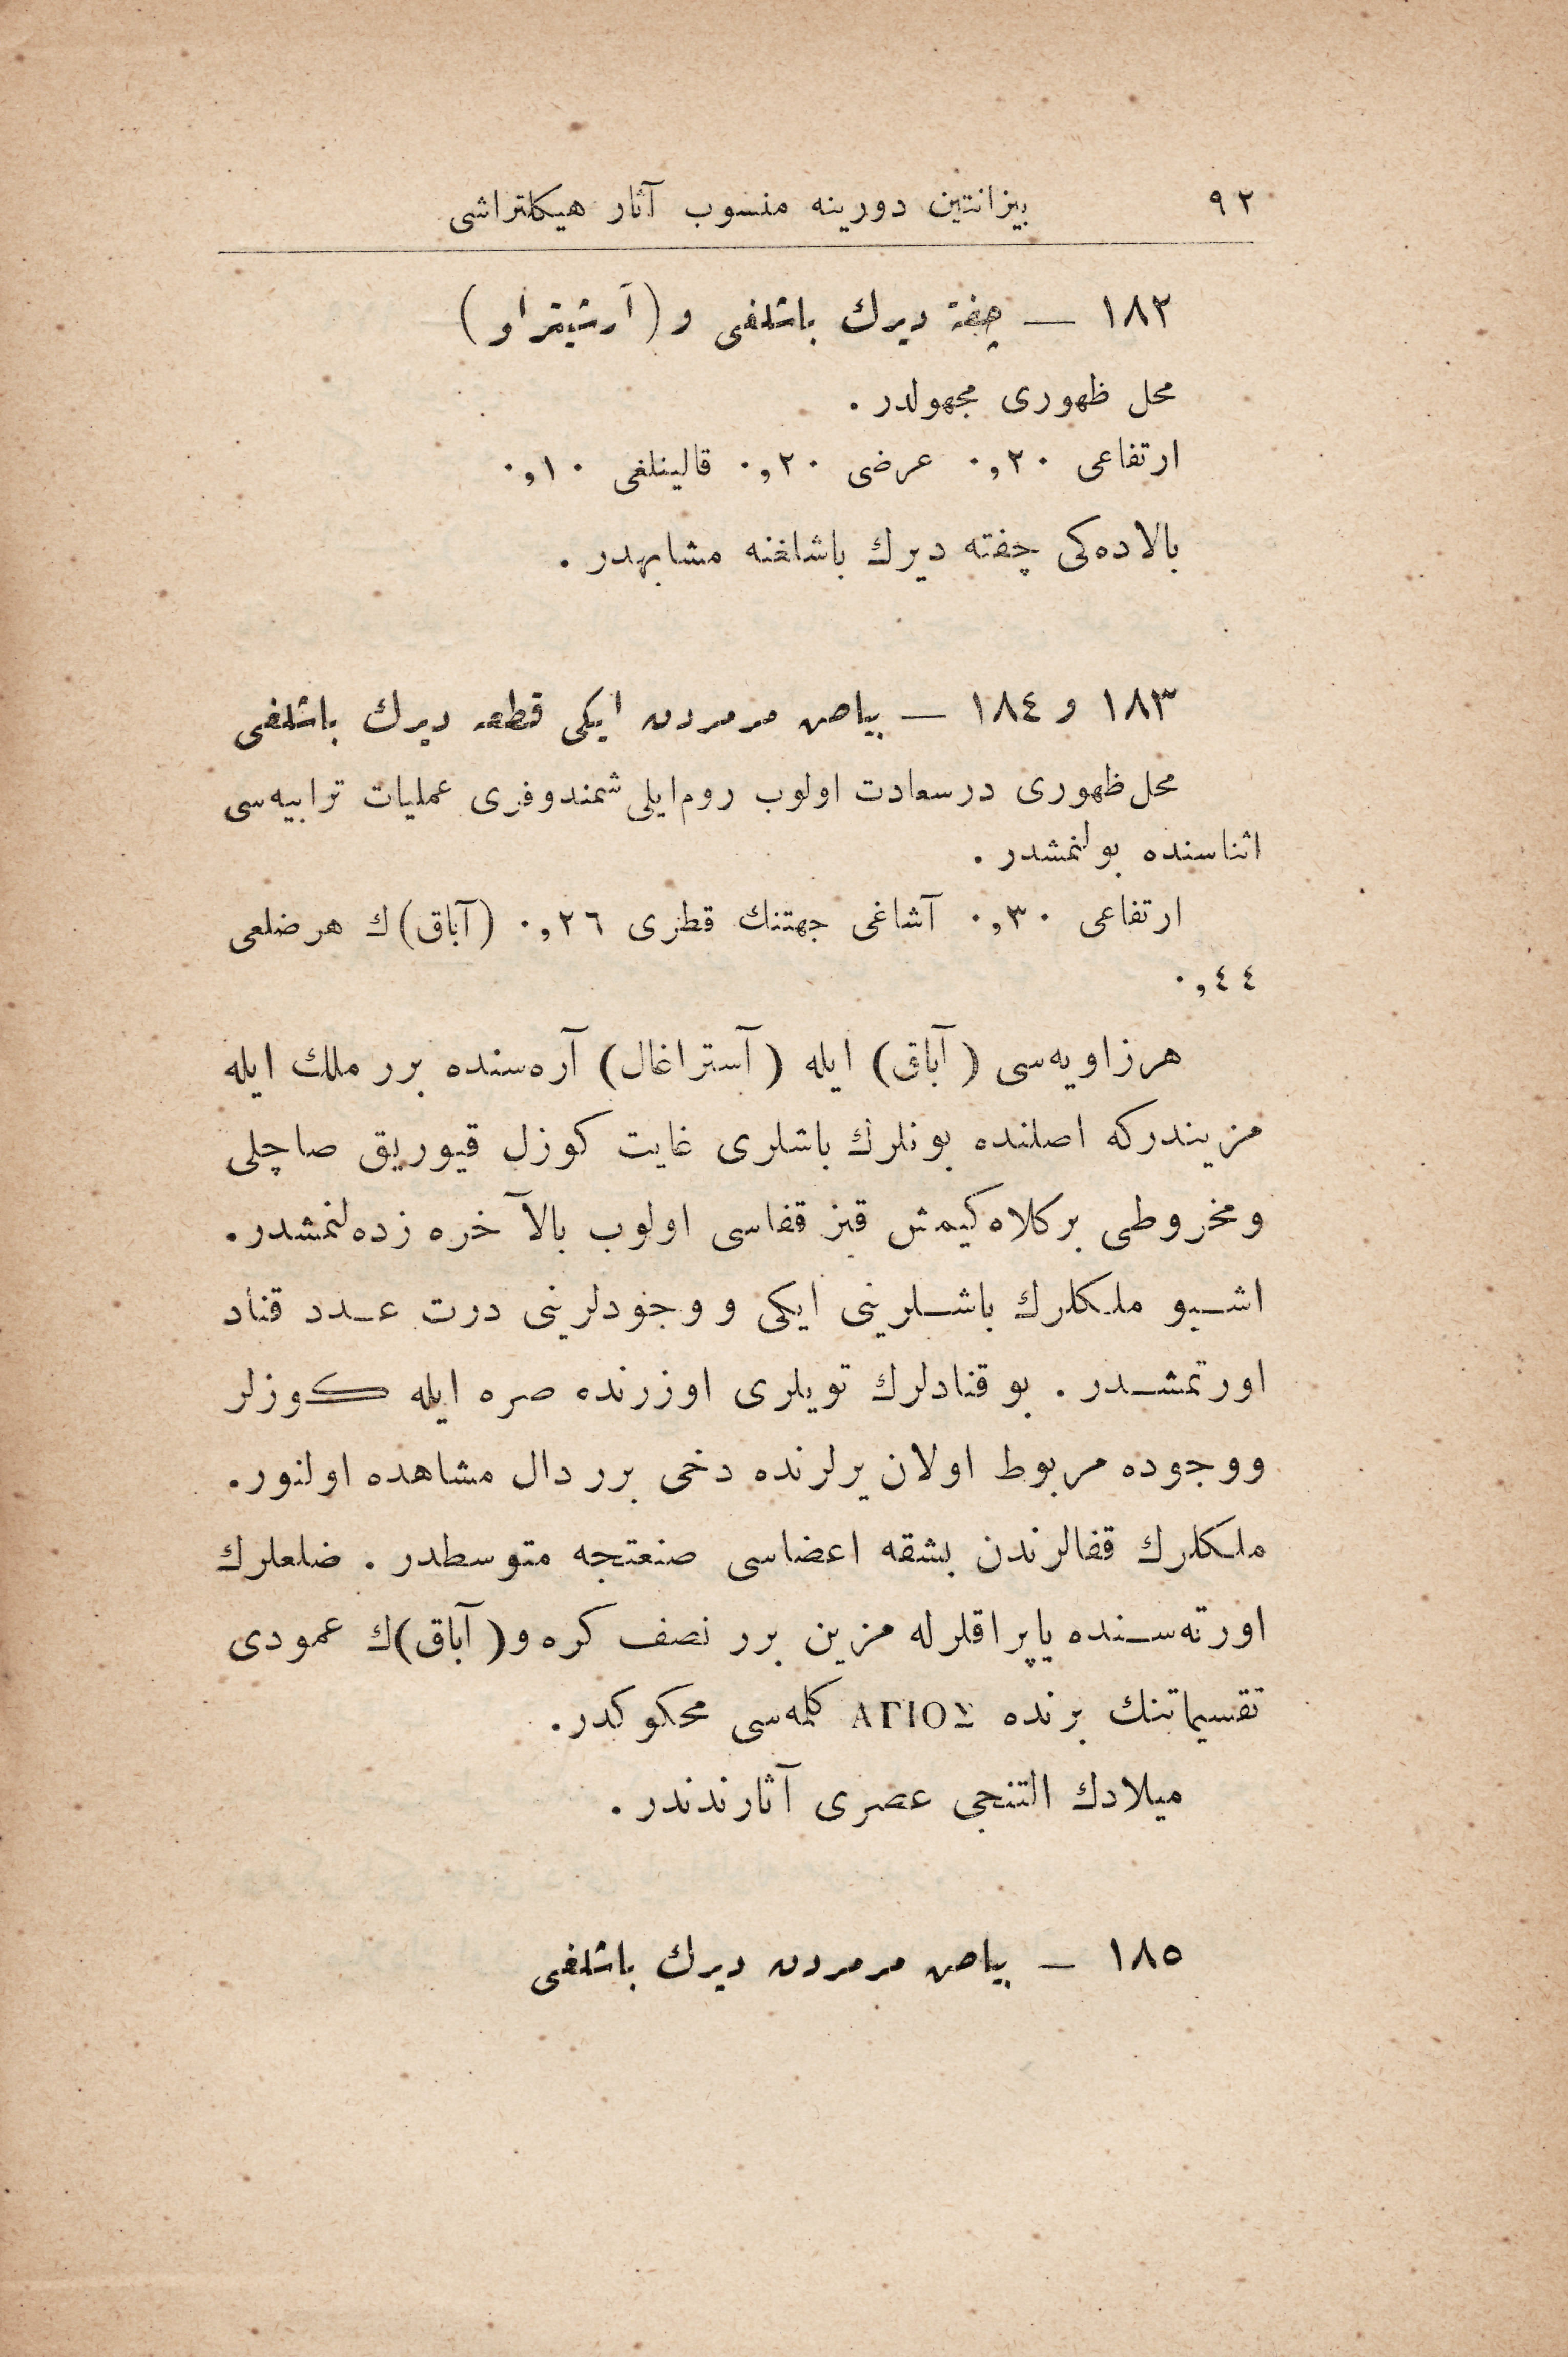 ٩٢ بیزانتین دورینه منسوب آثار هیکلتراشی
١٨٢ — چفته دیرك باشلغی و (آرشیتراو)
محل ظهوری مجهولدر .
ارتفاعی ٠,٢٠ عرضی ٠,٢٠ قالینلغی ٠,١٠
بالاده‌کی چفته دیرك باشلغنه مشابهدر .
١٨٣ و ١٨٤ — بیاض مرمردن ایکی قطعه دیرك باشلغی
محل ظهوری درسعادت اولوب روم‌ایلی شمندوفری عملیات ترابیه‌سی
اثناسنده بولنمشدر .
ارتفاعی ٠,٣٠ آشاغی جهتنك قطری ٠,٢٦ (آباق)ك هر ضلعی
٠,٤٤
هر زاویه‌سی (آباق) ایله (آستراغال) آره‌سنده برر ملك ایله
مزیندرکه اصلنده بونلرك باشلری غایت کوزل قیوریق صاچلی
ومخروطی برکلاه کیمش قیز قفاسی اولوب بالآخره زده‌لنمشدر.
اشبو ملکلرك باشلرینی ایکی و وجودلرینی درت عدد قناد
اورتمشدر . بو قنادلرك تویلری اوزرنده صره ایله کوزلر
ووجوده مربوط اولان یرلرنده دخی برر دال مشاهده اولنور.
ملکلرك قفالرندن بشقه اعضاسی صنعتجه متوسطدر . ضلعلرك
اورته‌سنده یاپراقلرله مزین برر نصف کره و(آباق)ك عمودی
تقسیماتنك برنده ΑΓΙΟΣ کلمه‌سی محکوکدر.
میلادك التنجی عصری آثارندندر .
١٨٥ — بیاض مرمردن دیرك باشلغی